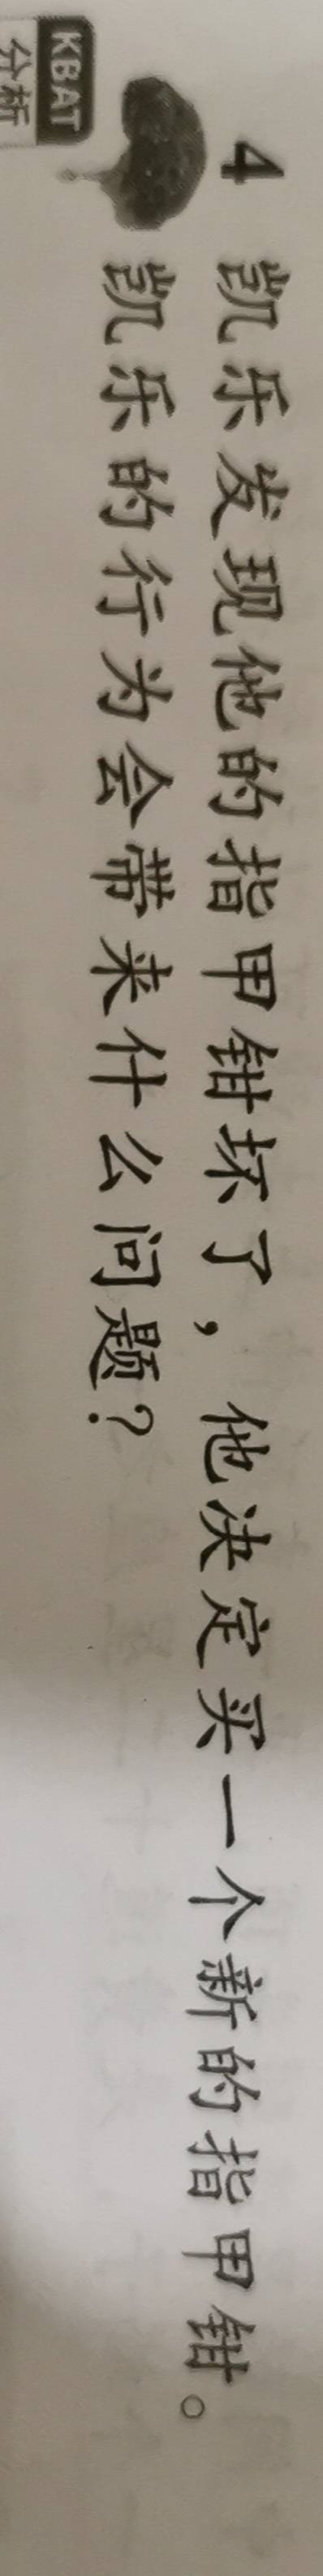 4 凯乐发现他的指甲钳坏了，他决定买一个新的指甲钳。
凯乐的行为会带来什么问题？
KBAT
分析